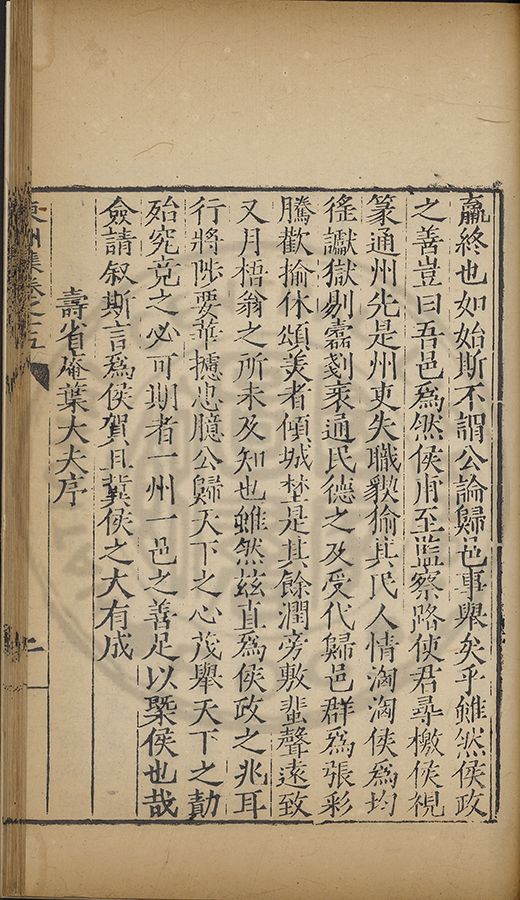 贏終也如始斯不謂公論歸邑事舉矣乎雖然侯政
之善豈曰吾邑為然侯甫至監察路使君尋檄侯視
篆通州先是州吏失職歝揄其民人情洶洶侯為均
徭讞獄剔蠹剗衺通民德之及受代歸邑群為張彩
騰歡揄休頌美者傾城埜是其餘潤旁敷蜚聲遠致
又月梧翁之所未及知也雖然茲直為侯政之兆耳
行將陟要華攄忠臆公歸天下之心茂舉天下之勣
殆究竟之必可期者一州一邑之善足以槩侯也哉
僉請叙斯言為侯賀且兾侯之大有成
壽省庵葉大夫序
州集卷之五